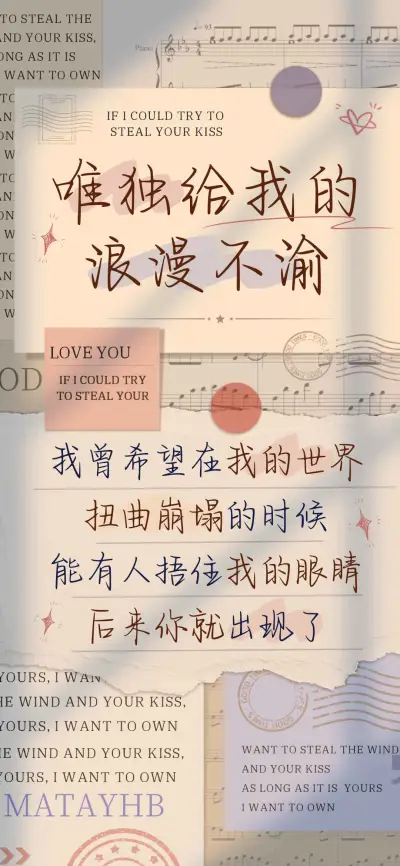 TO STEAL THE
AND YOUR KISS,
ONG AS IT IS
WANT TO OWN
Piano
IF I COULD TRY TO
STEAL YOUR KISS
唯独给我的
浪漫不渝
LOVE YOU
IF I COULD TRY
TO STEAL YOUR
OD
我曾希望在我的世界
扭曲崩塌的时候
能有人捂住我的眼睛
后来你就出现了
YOURS, I WAN
HE WIND AND YOUR KISS,
YOURS, I WANT TO OWN
HE WIND AND YOUR KISS,
YOURS, I WANT TO OWN
MATAYHB
WANT TO STEAL THE WIND
AND YOUR KISS
AS LONG AS IT IS YOURS
I WANT TO OWN